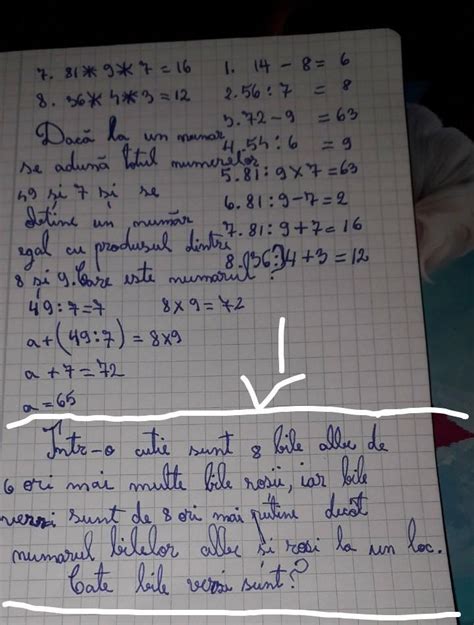 7. 81 * 9 * 7 = 16
8. 36 * 4 * 3 = 12
Dacă la un numar
se adună totul numerelor
49 și 7 și se
obține un număr
egal cu produsul dintre
8 și 9. Care este numarul?
49 : 7 = 7 8 x 9 = 72
a + (49 : 7) = 8 x 9
a + 7 = 72
a = 65
1. 14 - 8 = 6
2. 56 : 7 = 8
3. 72 - 9 = 63
4. 54 : 6 = 9
5. 81 : 9 x 7 = 63
6. 81 : 9 - 7 = 2
7. 81 : 9 + 7 = 16
8. (36 : ) 4 + 3 = 12
Într-o cutie sunt 8 bile albe de
6 ori mai multe bile rosii, iar bile
verzi sunt de 8 ori mai puține decât
numarul bilelor albe și rosi la un loc.
Cate bile verzi sunt?